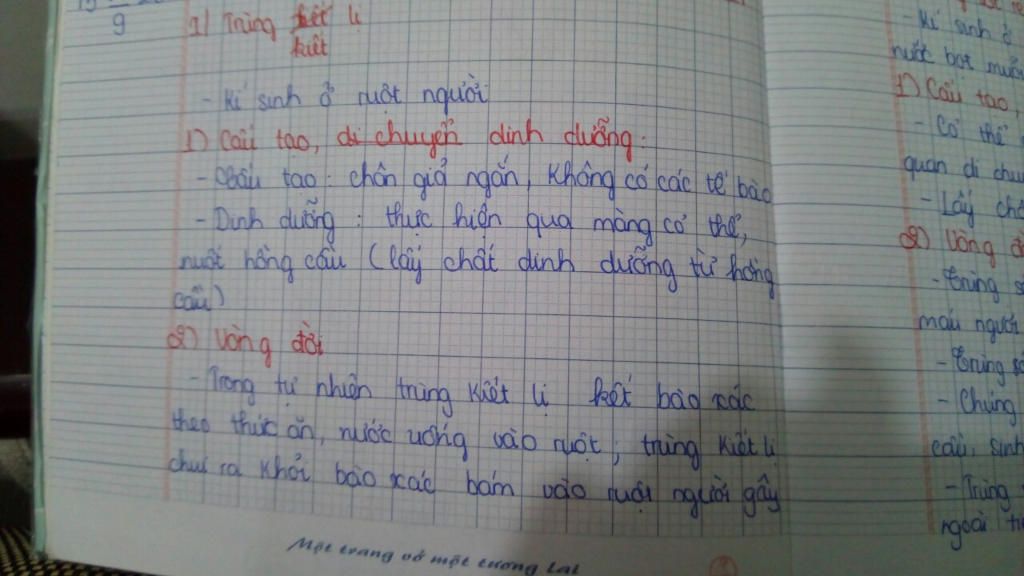 9
1/ Trùng kiết lị
- Kí sinh ở ruột người
1) Cấu tạo, di chuyển dinh dưỡng:
- Cấu tạo: chân giả ngắn, không có các tế bào
- Dinh dưỡng: thực hiện qua màng cơ thể,
nuốt hồng cầu (lấy chất dinh dưỡng từ hồng
cầu)
2) Vòng đời
- Trong tự nhiên trùng kiết lị kết bào xác
theo thức ăn, nước uống vào ruột; trùng kiết lị
chui ra khỏi bào xác bám vào ruột người gây
Một trang vở một tương lai
- Kí sinh ở
nước bọt muỗi
1) Cấu tạo,
- Cơ thể
quan di chu
- Lấy chấ
2) Vòng đ
- Trùng s
máu người
- Trùng số
- Chúng
cầu, sinh
- Trùng
ngoài